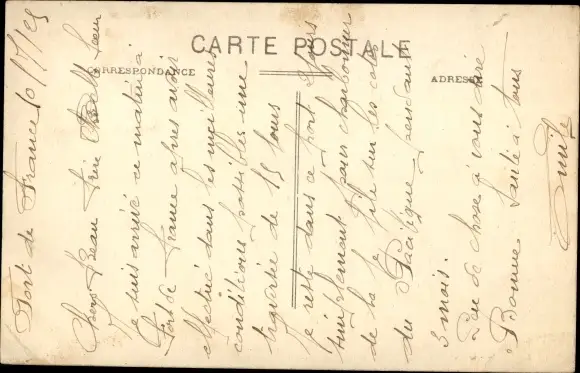 CARTE POSTALE
CORRESPONDANCE
ADRESSE
Fort de France 10/1/25
Chers Beau frère et Belle Soeur
Je suis arrivé ce matin à
Fort de France après avoir
effectué dans les meilleures
conditions possibles une
traversée de 15 jours
Je reste dans ce port 2 jours
simplement pour charbonner
de la je file sur les cotes
du Pacifique pendant
3 mois.
Pas de chose à vous dire
Bonne santé à tous
Emile